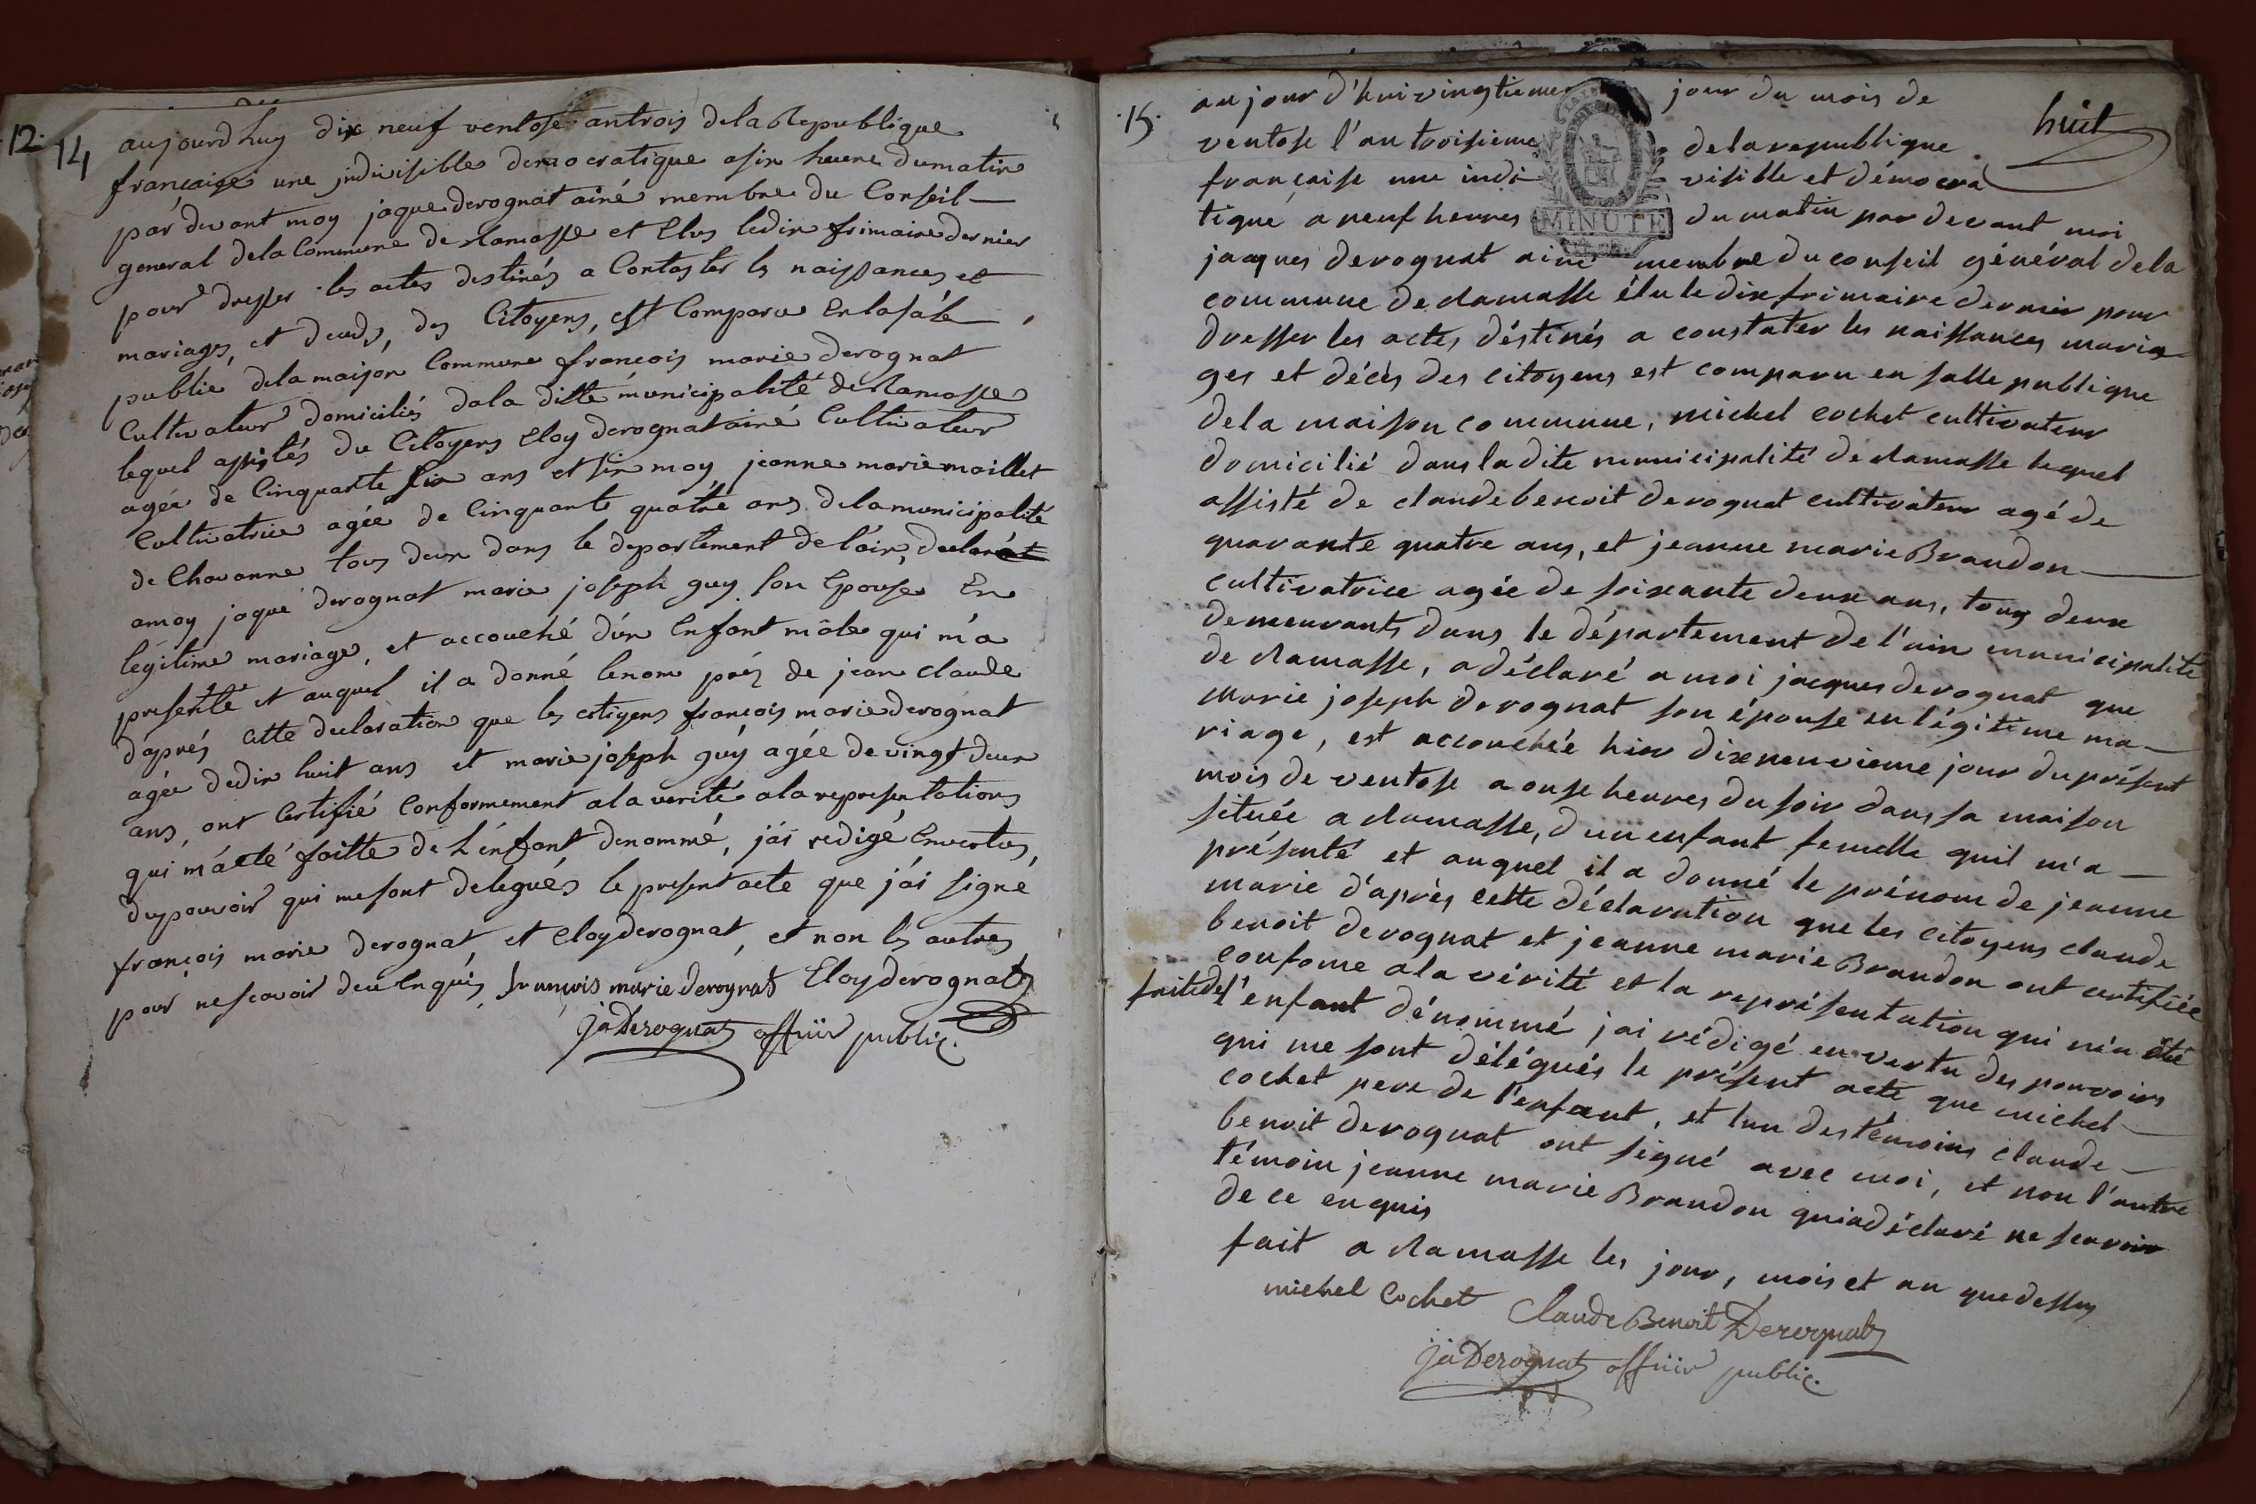 12.
14
aujourdhuy dix neuf ventose antrois dela Republique
françaige une jndivisible democratique asix heure dumatin
par devant moy jaque derognat ainé membre du Conseil
general dela Commune de Ramasse et Elus ledix frimaire dernier
pour dresser les actes destinés a Contaster les naissances et
mariages, et deceds, des Citoyens, est Comparu En lasale
public dela maison Commune françois marie derognat
Cultivateur domiciliés dala ditte municipalité de Ramasse
lequel assistés du Citoyens Eloy derognat ainé Cultivateur
agée de Cinquante six ans et six moy jeanne marie maillet
Cultivatrice agée de Cinquante quatre ans dela municipalité
de Chavanne tous deux dans le departement de l'ain, declar
amoy jaque derognat marie joseph guy son Epouse En
legitime mariage, et accouché d'un Enfant mâle qui m'a
presenté et auquel il a donné lenom prés de jean claude
d'aprés cette declaration que les citiyens françois marie derognat
agée dedix huit ans et marie joseph guÿ agée de vingt deux
ans, ont Certifié Conformement ala verité ala representations
qui m'a été faitte de L'énfant denommé, j'ai redigé Envertus
dupouvoir qui mesont delegués le present acte que j'ai signé
françois marie derognat, et Eloy derognat, et non les autres
pour nescavoir deu Enquis françois marie derognat Eloy derognat
ja Derognat offiier public.
15.
huit
aujourd'hui vingtieme jour du mois de
ventose l'an troisieme dela republique
française une indi visible et démocra
tique a neuf heures MINUTE du matin par devant moi
jaques derognat ainé membre du conseil général dela
commune de Ramasse élu le dix frimaire dernier pour
dresser les actes déstinés a constater les naissances maria
ges et décès des citoyens est comparu en salle publique
dela maison commune, michel cochet cultivateur
domicilié dans ladite municipalité de Ramasse lequel
assisté de claude benoit derognat cultivateur agé de
quarante quatre ans, et jeanne marie Brandon
cultivatrice agée de soixante deux ans, tous deux
demeurants dans le département de l'ain municipalité
de Ramasse, a déclaré a moi jacques derognat que
marie joseph derognat son épouse en légitime ma
riage, est accouchée hier dixneuvieme jour du présent
mois de ventose a onse heures du soir dans sa maison
située a Ramasse, d'un enfant femelle quil m'a
présenté et auquel il a donné le prénom de jeanne
marie d'après cette déclaration que les citoyens claude
benoit derognat et jeanne marie Brandon ont certifiée
confome ala vérité et la représentation qui m'a été
faite de l'enfant dénommé jai rédigé en vertu des pouvoirs
qui me sont délégués le présent acte que michel
cochet pere de l'enfant, et lun des témoins claude
benoit derognat ont signé avec moi, et non l'autre
témoin jeanne marie Brandon quia déclaré ne scavoir
de ce enquis
fait a Ramasse les jour, mois et an que dessus
michel Cochet Claude Benoit Derognat
ja Derognat offiier public.